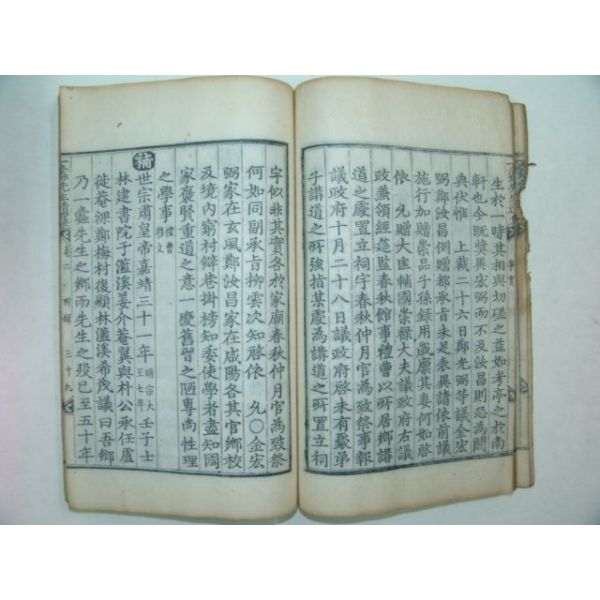 生於一時其相與切磋之益如考亭之於南
軒也今既獎異宏弼而不及汝昌則恐為闕
典伏惟 上裁二十六日鄭光弼等議金宏
弼鄭汝昌例贈都承旨未足表異請依前議
施行加贈崇品子孫錄用歲廩其妻何如啓
依 允贈大匡輔國崇祿大夫議政府右議
政兼領經筵監春秋館事禮曹以所居鄉講
道之處置立祠宇春秋仲月官為致祭事報
議政府十月二十八日議政府啓未有羣弟
子講道之所強指某處為講道之所置立祠
宇似非其實各於家廟春秋仲月官為致祭
何如同副承旨柳雲次知啓依 允○金宏
弼家在玄風鄭汝昌家在咸陽各其官鄉校
及境內窮村僻巷掛榜知委使學者盡知國
家褒賢重道之意一變舊習之陋專尚性理
之學事 禮曹移文
補
世宗肅皇帝嘉靖三十一年 明宗大王七年 壬子士
林建書院于灆溪姜介菴翼與朴公承任盧
徙菴裸鄭梅村復顯林灆溪希茂議曰吾鄉
乃一蠹先生之鄉而先生之歿已至五十年
一蠹先生 卷二 附錄 三十九